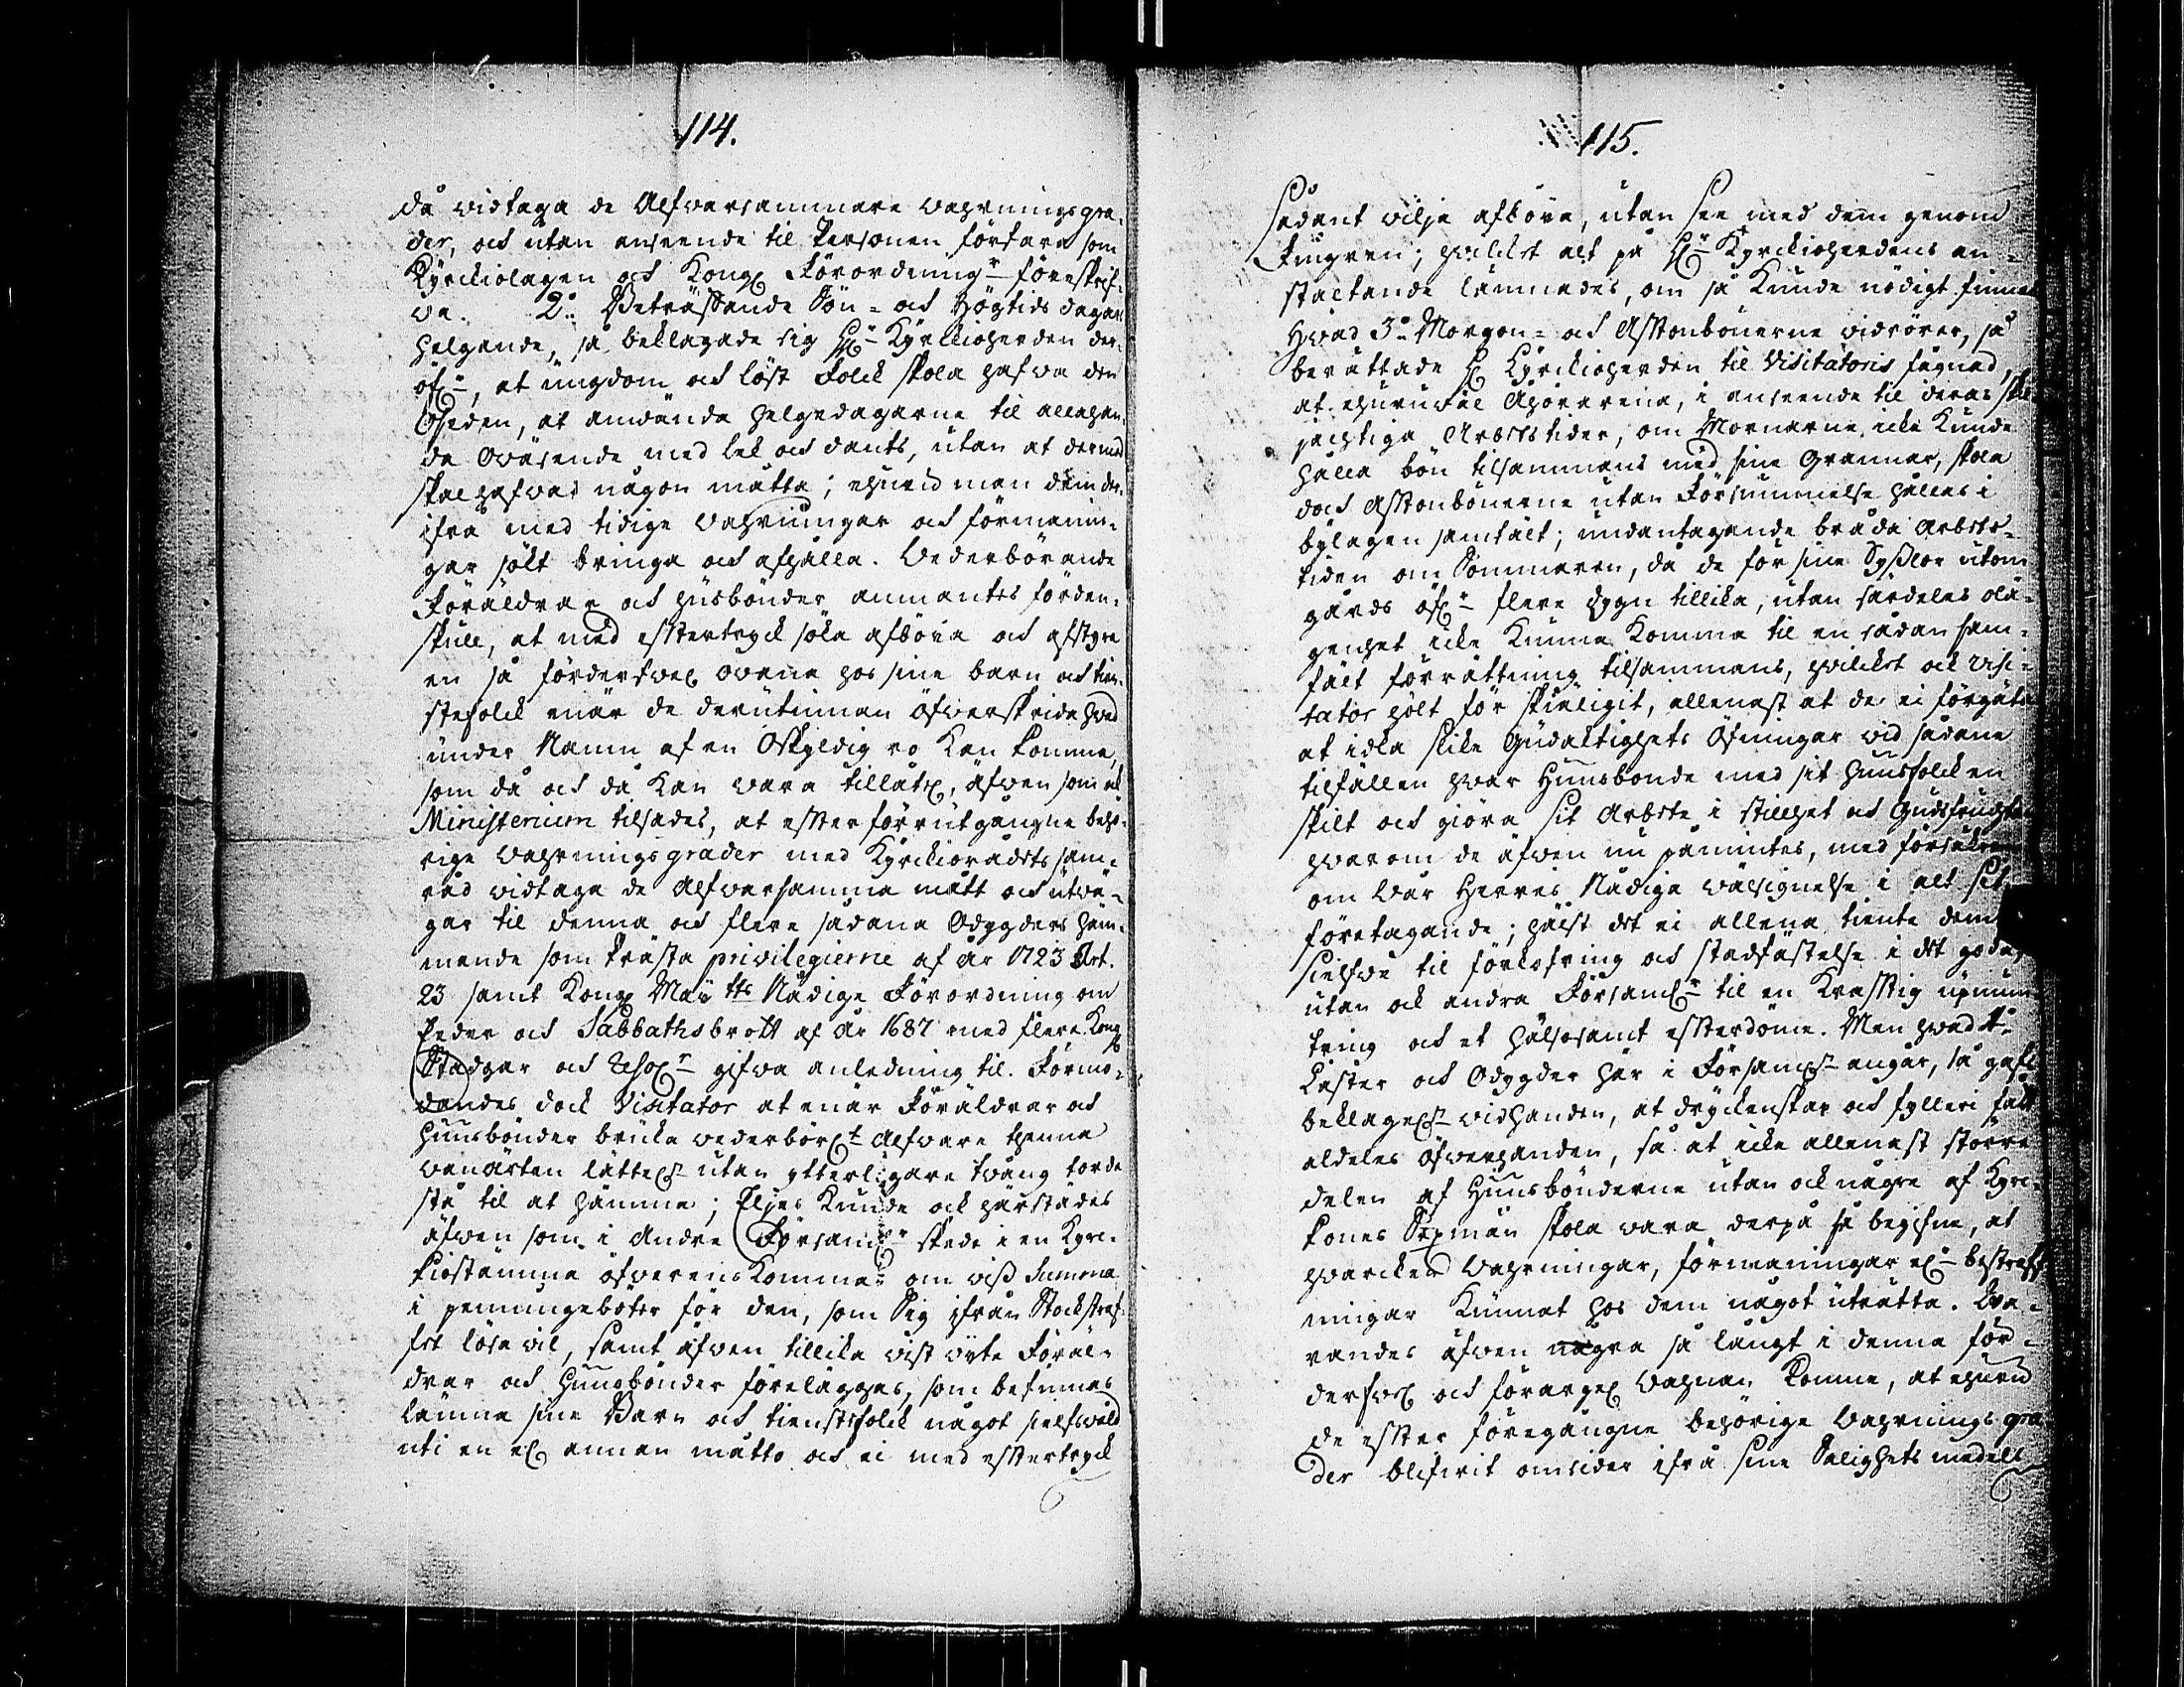 114.
då vidtaga de Alfvarsammare varningsgra-
der, och utan anseende til Personen förfara som
Kyrckiolagen och Kongl Förordningr föreskrif-
va. 2:o Beträffande Sön- och Högtids dagars
helgande, så beklagade sig Hr Kyrckioherden der-
öfr, at ungdom och löst folck skola hafva den
Oseden, at använda helgedagarne til allahan-
da Oväsende med lek och dants, utan at dermed
skal hafvas någon måtta; ehuru man dem der-
ifrå med tidige varningar och förmanin-
gar sökt bringa och afhålla. Vederbörande
Föräldrar och husbönder anmantes förden-
skull, at med eftertryck söka afböja och afstyra
en så förderfvel ovana hos sine barn och tien-
stefolck enär de derutinnan öfverskrida hvad
under Namn af en Oskyldig ro kan komma,
som då och då kan vara tillåtel, äfven som ock
Ministerium tilsades, at efter förrutgångne behö-
rige varningsgrader med Kyrckiorådets sam-
råd vidtaga de Alfvarsamma mått och utvä-
gar til denna och flere sådana Odygders häm-
mande som Prästa privilegierne af år 1723 Art.
23 samt Kongl Maij:tts Nådige Förordning om
Eeder och Sabbathsbrott af år 1687 med flere Kongl
Stadgar och Resolr gifva anledning til. Förmo-
dandes dock Visitator at enär Föräldrar och
Huusbönder bruka vederbörlt Alfvare thenna
vanarten lättelr utan ytterligare tvång torde
stå til at hämma; Eljes kunde ock härstädes
äfven som i Andre Församlr skede i en Kyrc-
kiostämma öfverenskommas om viss Summa
i penningeböter för den, som Sig ifrån Stockstraf-
fet lösa vil, samt äfven tillika vist vite Föräl-
drar och Huusbönder föreläggas, som befinnas
lämna sine Barn och tienstefolck något sielfsvåld
uti en elr annan måtto och ei med eftertryck
115.
Sådant vilja afböja, utan see med dem genom
fingren; hvilcket alt på Hr Kyrckioherdens an-
staltande lämnades, om så kunde nödigt finnas
Hvad 3:o Morgon- och Aftonbönerne vidrörer, så
berättade H Kyrckioherden til Visitatoris fägnad,
at ehuruväl Åhörarena, i anseende til deras skil-
jachtiga Arbetstider, om Mornarne icke kunde
hålla bön tilsammans med sine Grannar, skola
dock Aftonbönerne utan Försummelse hållas i
bylagen samfält; undantagande bråda Arbets-
tiden om Sommaren, då de för sine Sysslor utom
gårds öfr flere dygn tillika, utan särdeles olä-
genhet icke kunna komma til en sådan sam-
fält förrättning tilsammans, hvilcket ock Visi-
tator hölt för skieligit, allenast at de ei förgäta
at idka slike Gudaktighets Öfningar vid sådane
tilfällen hvar Huusbonde med sit Huusfolck en-
skilt och giöra sit Arbete i stillhet och Gudsfruchtan
hvarom de äfven nu påmintes, med försäkran
om Vår Herres Nådiga välsignelse i alt sit
företagande; hälst det ei allena tiente dem
sielfve til förkofring och stadfästelse i det goda,
utan ock andra Församlr til en kraftig upmun-
tring och et hälsosamt efterdöme. Men hvad 4:o
Laster och Odygder här i Församlr angår, så gafs
beklagelr vidhanden, at dryckenskap och fylleri fått
aldeles öfverhanden, så at icke allenast större
delen af Huusbönderne utan ock någre af Kyrc-
kones Sexmän skola vara derpå så begifne, at
hvarcken varningar, förmaningar elr bestraff-
ningar kunnat hos dem något uträtta. Va-
randes äfven några så långt i denna för-
derfvel och förargel vahnan komne, at ehuru
de efter föregångne behörige varnings gra-
der blifvit omsider ifrå sine Salighets medell